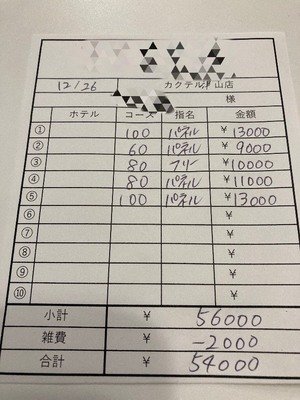 12/26 カクテル津山店
様
ホテル コース 指名 金額
① 100 パネル ¥13000
② 60 パネル ¥9000
③ 80 フリー ¥10000
④ 80 パネル ¥11000
⑤ 100 パネル ¥13000
⑥ ¥
⑦ ¥
⑧ ¥
⑨ ¥
⑩ ¥
小計 ¥ 56000
雑費 ¥ -2000
合計 ¥ 54000